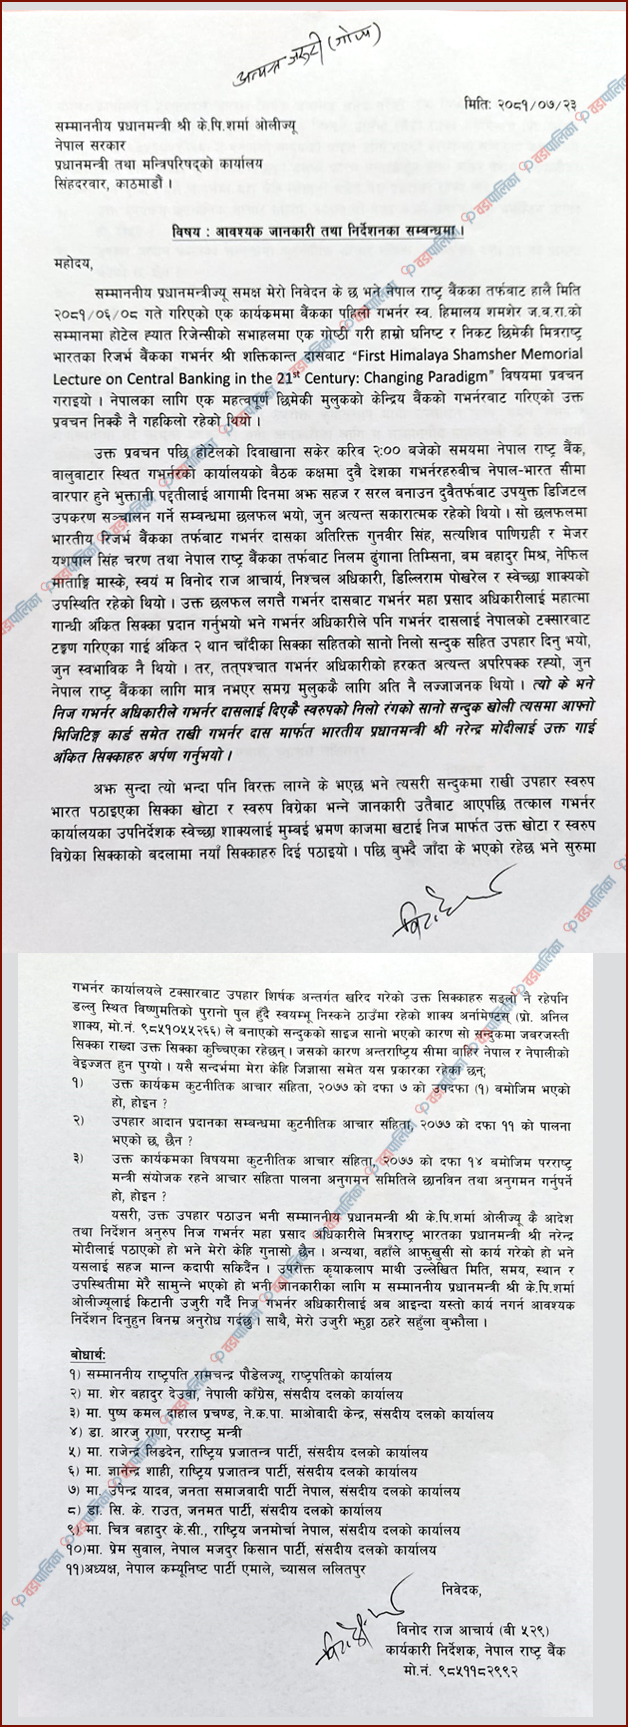 अत्यन्त जरुरी (गोप्य)
मितिः २०८१/०७/२३
सम्माननीय प्रधानमन्त्री श्री के.पि.शर्मा ओलीज्यू
नेपाल सरकार
प्रधानमन्त्री तथा मन्त्रिपरिषद्को कार्यालय
सिंहदरवार, काठमाडौं ।
विषय : आवश्यक जानकारी तथा निर्देशनका सम्बन्धमा ।
महोदय,
सम्माननीय प्रधानमन्त्रीज्यू समक्ष मेरो निवेदन के छ भने नेपाल राष्ट्र बैंकका तर्फबाट हालै मिति
२०८१/०६/०८ गते गरिएको एक कार्यक्रममा बैंकका पहिलो गभर्नर स्व. हिमालय शमशेर ज.ब.रा.को
सम्मानमा होटेल ह्यात रिजेन्सीको सभाहलमा एक गोष्ठी गरी हाम्रो घनिष्ट र निकट छिमेकी मित्रराष्ट्र
भारतका रिजर्भ बैंकका गभर्नर श्री शक्तिकान्त दासबाट "First Himalaya Shamsher Memorial
Lecture on Central Banking in the 21st Century: Changing Paradigm" विषयमा प्रवचन
गराइयो । नेपालका लागि एक महत्वपूर्ण छिमेकी मुलुकको केन्द्रिय बैंकको गभर्नरबाट गरिएको उक्त
प्रवचन निक्कै नै गहकिलो रहेको थियो ।
उक्त प्रवचन पछि होटेलको दिवाखाना सकेर करिव २:०० बजेको समयमा नेपाल राष्ट्र बैंक,
वालुवाटार स्थित गभर्नरको कार्यालयको बैठक कक्षमा दुवै देशका गभर्नरहरुवीच नेपाल-भारत सीमा
वारपार हुने भुक्तानी पद्दतीलाई आगामी दिनमा अझ सहज र सरल बनाउन दुवैतर्फबाट उपयुक्त डिजिटल
उपकरण सञ्चालन गर्ने सम्बन्धमा छलफल भयो, जुन अत्यन्त सकारात्मक रहेको थियो । सो छलफलमा
भारतीय रिजर्भ बैंकका तर्फबाट गभर्नर दासका अतिरिक्त गुनवीर सिंह, सत्यशिव पाणिग्रही र मेजर
यशपाल सिंह चरण तथा नेपाल राष्ट्र बैंकका तर्फबाट निलम ढुंगाना तिम्सिना, बम बहादुर मिश्र, नेफिल
माताङ्गि मास्के, स्वयं म विनोद राज आचार्य, निश्चल अधिकारी, डिल्लिराम पोखरेल र स्वेच्छा शाक्यको
उपस्थिति रहेको थियो । उक्त छलफल लगत्तै गभर्नर दासबाट गभर्नर महा प्रसाद अधिकारीलाई महात्मा
गान्धी अंकित सिक्का प्रदान गर्नुभयो भने गभर्नर अधिकारीले पनि गभर्नर दासलाई नेपालको टक्सारबाट
टङ्कण गरिएका गाई अंकित २ थान चाँदीका सिक्का सहितको सानो निलो सन्दुक सहित उपहार दिनु भयो,
जुन स्वभाविक नै थियो । तर, तत्पश्चात गभर्नर अधिकारीको हरकत अत्यन्त अपरिपक्क रह्यो, जुन
नेपाल राष्ट्र बैंकका लागि मात्र नभएर समग्र मुलुककै लागि अति नै लज्जाजनक थियो । त्यो के भने
निज गभर्नर अधिकारीले गभर्नर दासलाई दिएकै स्वरुपको निलो रंगको सानो सन्दुक खोली त्यसमा आफ्नो
भिजिटिङ्ग कार्ड समेत राखी गभर्नर दास मार्फत भारतीय प्रधानमन्त्री श्री नरेन्द्र मोदीलाई उक्त गाई
अंकित सिक्काहरु अर्पण गर्नुभयो ।
अझ सुन्दा त्यो भन्दा पनि विरक्त लाग्ने के भएछ भने त्यसरी सन्दुकमा राखी उपहार स्वरुप
भारत पठाइएका सिक्का खोटा र स्वरुप विग्रेका भन्ने जानकारी उतैबाट आएपछि तत्काल गभर्नर
कार्यालयका उपनिर्देशक स्वेच्छा शाक्यलाई मुम्बई भ्रमण काजमा खटाई निज मार्फत उक्त खोटा र स्वरुप
विग्रेका सिक्काको बदलामा नयाँ सिक्काहरु दिई पठाइयो । पछि बुझ्दै जाँदा के भएको रहेछ भने सुरुमा
गभर्नर कार्यालयले टक्सारबाट उपहार शिर्षक अन्तर्गत खरिद गरेको उक्त सिक्काहरु सङ्लो नै रहेपनि
डल्लु स्थित विष्णुमतिको पुरानो पुल हुँदै स्वयम्भू निस्कने ठाउँमा रहेको शाक्य अर्नामेण्टस् (प्रो. अनिल
शाक्य, मो.नं. ९८५१०५५२६६) ले बनाएको सन्दुकको साइज सानो भएको कारण सो सन्दुकमा जबरजस्ती
सिक्का राख्दा उक्त सिक्का कुच्चिएका रहेछन् । जसको कारण अन्तराष्ट्रिय सीमा बाहिर नेपाल र नेपालीको
वेइज्जत हुन पुग्यो । यसै सन्दर्भमा मेरा केहि जिज्ञासा समेत यस प्रकारका रहेका छन्;
१) उक्त कार्यकम कुटनीतिक आचार संहिता, २०७७ को दफा ७ को उपदफा (१) बमोजिम भएको
हो, होइन ?
२) उपहार आदान प्रदानका सम्बन्धमा कुटनीतिक आचार संहिता, २०७७ को दफा ११ को पालना
भएको छ, छैन ?
३) उक्त कार्यकमका विषयमा कुटनीतिक आचार संहिता, २०७७ को दफा १४ बमोजिम परराष्ट्र
मन्त्री संयोजक रहने आचार संहिता पालना अनुगमन समितिले छानविन तथा अनुगमन गर्नुपर्ने
हो, होइन ?
यसरी, उक्त उपहार पठाउन भनी सम्माननीय प्रधानमन्त्री श्री के.पि.शर्मा ओलीज्यू कै आदेश
तथा निर्देशन अनुरुप निज गभर्नर महा प्रसाद अधिकारीले मित्रराष्ट्र भारतका प्रधानमन्त्री श्री नरेन्द्र
मोदीलाई पठाएको हो भने मेरो केहि गुनासो छैन । अन्यथा, वहाँले आफुखुसी सो कार्य गरेको हो भने
यसलाई सहज मान्न कदापी सकिदैन । उपरोक्त कृयाकलाप माथी उल्लेखित मिति, समय, स्थान र
उपस्थितीमा मेरै सामुन्ने भएको हो भनी जानकारीका लागि म सम्माननीय प्रधानमन्त्री श्री के.पि.शर्मा
ओलीज्यूलाई किटानी उजुरी गर्दै निज गभर्नर अधिकारीलाई अब आइन्दा यस्तो कार्य नगर्न आवश्यक
निर्देशन दिनुहुन विनम्र अनुरोध गर्दछु । साथै, मेरो उजुरी झुठ्ठा ठहरे सहुँला बुझौला ।
बोधार्थः
१) सम्माननीय राष्ट्रपति रामचन्द्र पौडेलज्यू, राष्ट्रपतिको कार्यालय
२) मा. शेर बहादुर देउवा, नेपाली काँग्रेस, संसदीय दलको कार्यालय
३) मा. पुष्प कमल दाहाल प्रचण्ड, ने.क.पा. माओवादी केन्द्र, संसदीय दलको कार्यालय
४) डा. आरजु राणा, परराष्ट्र मन्त्री
५) मा. राजेन्द्र लिङदेन, राष्ट्रिय प्रजातन्त्र पार्टी, संसदीय दलको कार्यालय
६) मा. ज्ञानेन्द्र शाही, राष्ट्रिय प्रजातन्त्र पार्टी, संसदीय दलको कार्यालय
७) मा. उपेन्द्र यादव, जनता समाजवादी पार्टी नेपाल, संसदीय दलको कार्यालय
८) डा. सि. के. राउत, जनमत पार्टी, संसदीय दलको कार्यालय
९) मा. चित्र बहादुर के.सी., राष्ट्रिय जनमोर्चा नेपाल, संसदीय दलको कार्यालय
१०)मा. प्रेम सुवाल, नेपाल मजदुर किसान पार्टी, संसदीय दलको कार्यालय
११)अध्यक्ष, नेपाल कम्यूनिष्ट पार्टी एमाले, च्यासल ललितपुर
निवेदक,
विनोद राज आचार्य (बी ५२९)
कार्यकारी निर्देशक, नेपाल राष्ट्र बैंक
मो.नं. ९८५११८२९९२
वडापालिका